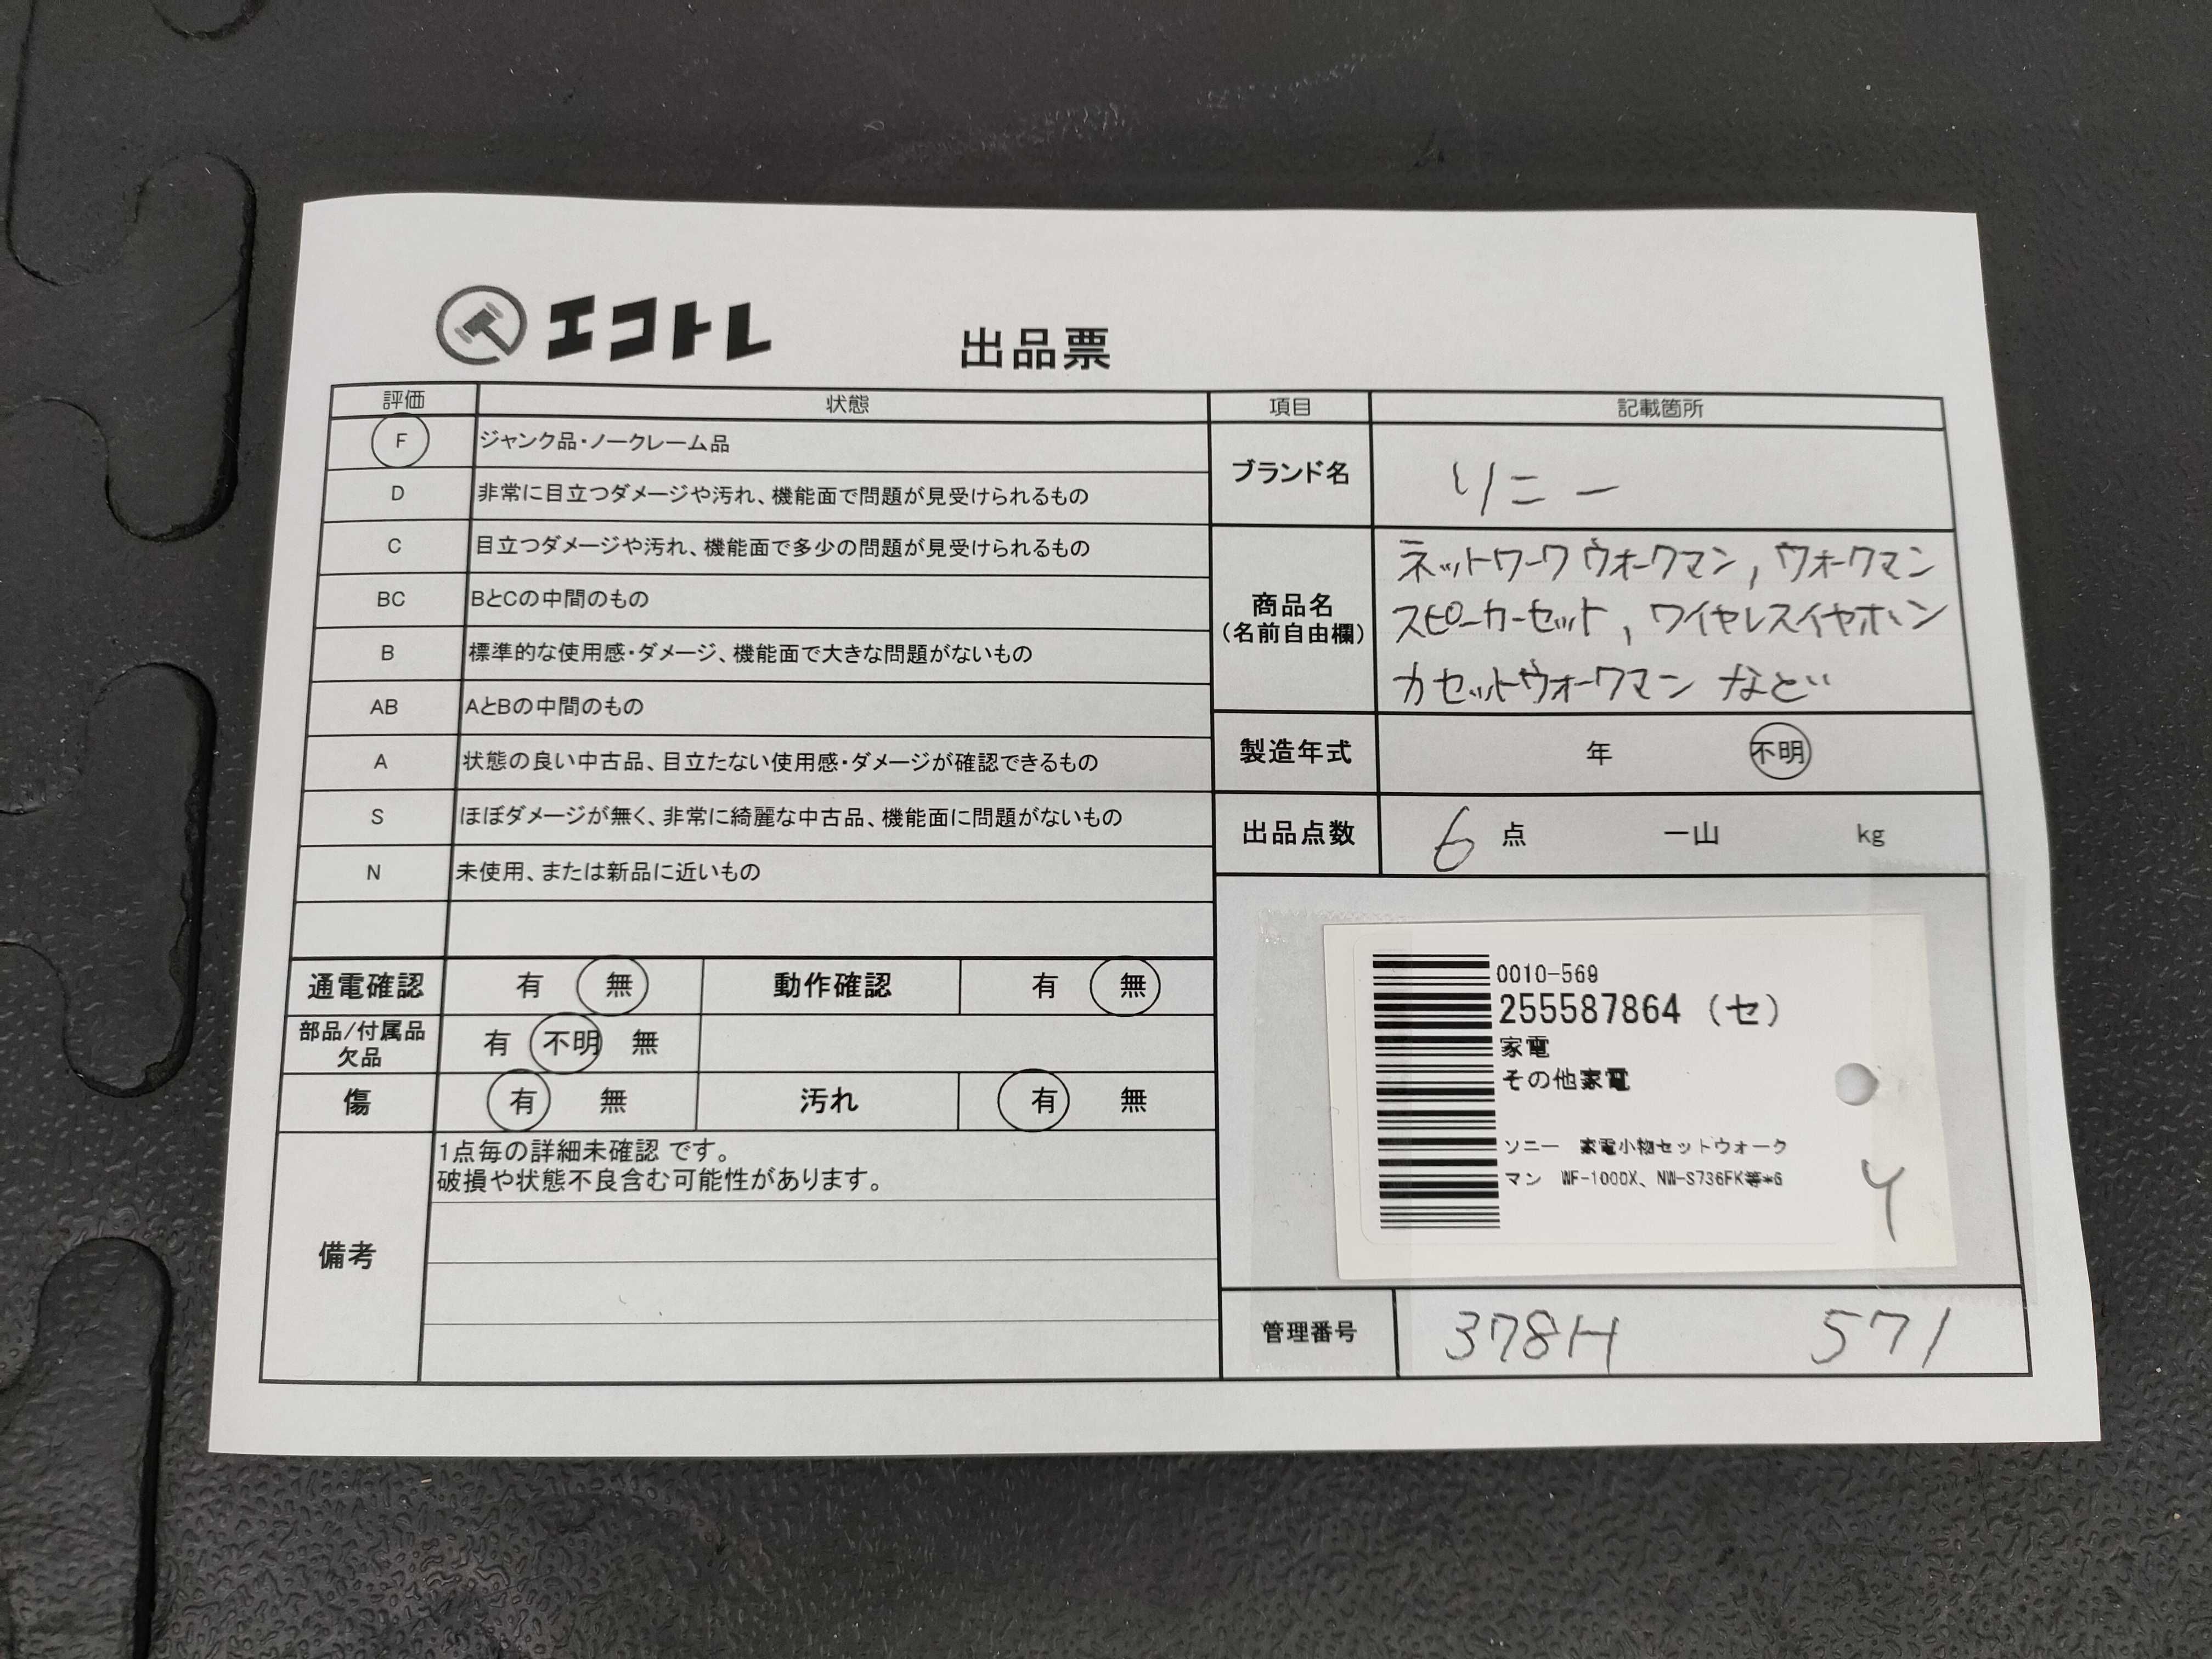 エコトレ 出品票
評価 状態
F ジャンク品・ノークレーム品
D 非常に目立つダメージや汚れ、機能面で問題が見受けられるもの
C 目立つダメージや汚れ、機能面で多少の問題が見受けられるもの
BC BとCの中間のもの
B 標準的な使用感・ダメージ、機能面で大きな問題がないもの
AB AとBの中間のもの
A 状態の良い中古品、目立たない使用感・ダメージが確認できるもの
S ほぼダメージが無く、非常に綺麗な中古品、機能面に問題がないもの
N 未使用、または新品に近いもの
通電確認 有 無 動作確認 有 無
部品/付属品
欠品 有 不明 無
傷 有 無 汚れ 有 無
備考
1点毎の詳細未確認 です。
破損や状態不良含む可能性があります。
項目 記載箇所
ブランド名 ソニー
商品名
(名前自由欄)
ネットワークウォークマン, ウォークマン
スピーカーセット, ワイヤレスイヤホン
カセットウォークマン など
製造年式 年 不明
出品点数 6 点 一山 kg
0010-569
255587864 (セ)
家電
その他家電
ソニー 家電小物セットウォーク
マン WF-1000X、NW-S736FK等*6
Y
管理番号 378H 571